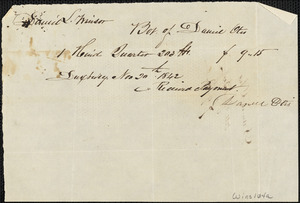 Daniel L Winsor
Bot of Daniel Otis
1 Hind Quarter 203 lb $ 9-15
Duxbury Nov 30th 1842
Received Payment
Daniel Otis